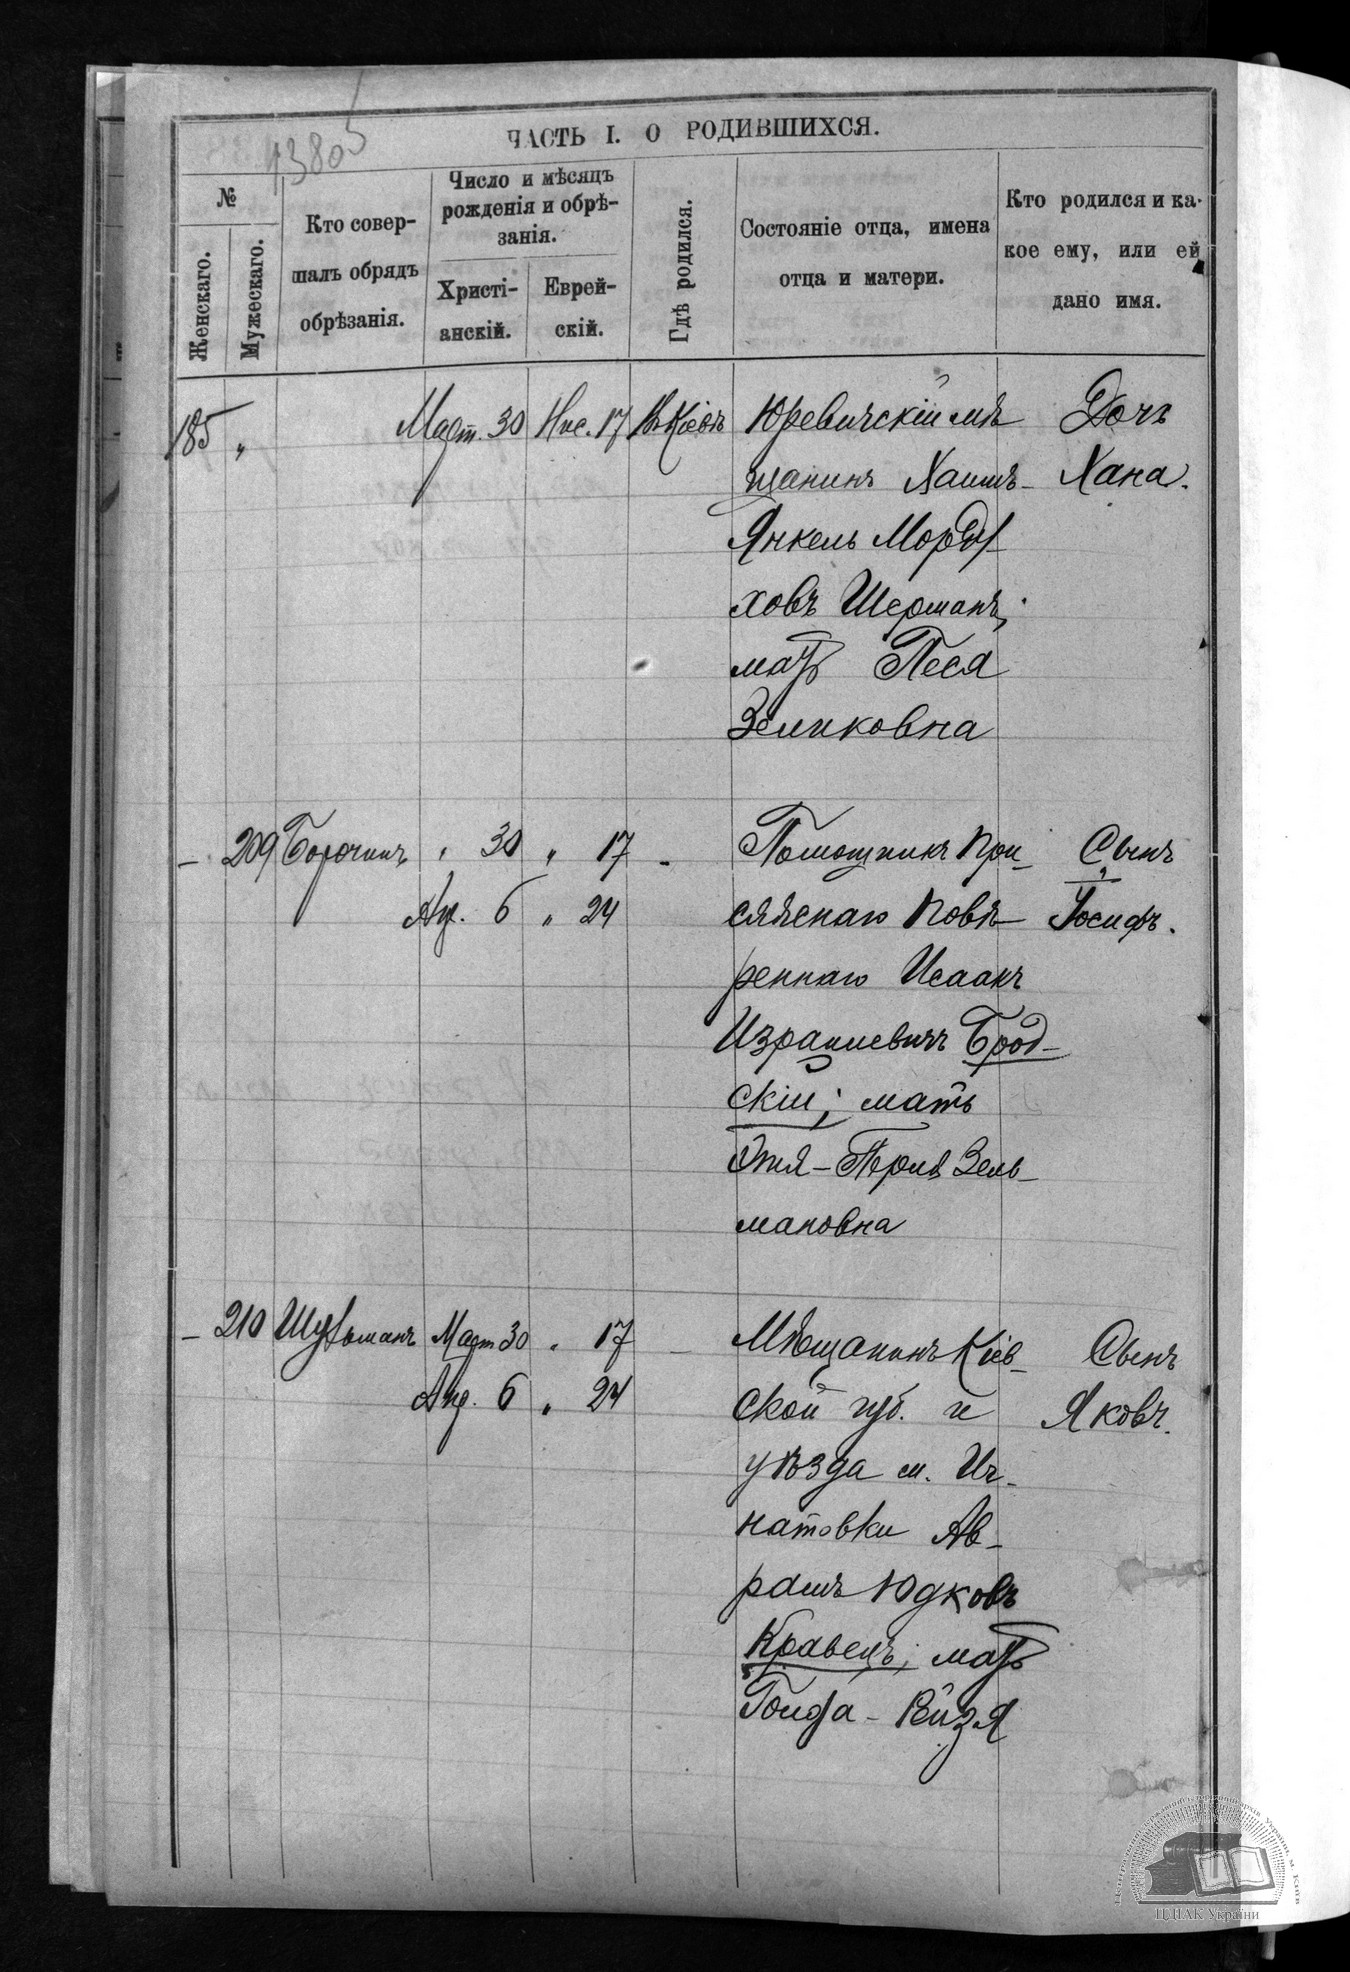 ЧАСТЬ I. О РОДИВШИХСЯ.
№
Женскаго.
Мужескаго.
Кто совер-
шалъ обрядъ
обрѣзанія.
Число и мѣсяцъ
рожденія и обрѣ-
занія.
Христі-
анскій.
Еврей-
скій.
Гдѣ родился.
Состояніе отца, имена
отца и матери.
Кто родился и ка-
кое ему, или ей
дано имя.
185 „ Март. 30 Нис. 17 Въ Кіевѣ Юревичскій мѣ Дочь
щанинъ Хаимъ- Хана.
Янкель Морду-
ховъ Шерманъ;
мать Песя
Зеликовна
– 209 Борочинъ „ 30 „ 17 – Помощникъ При- Сынъ
Ап. 6 „ 24 сяжнаго Повѣ- Іосифъ.
реннаго Исаакъ
Израилевичъ Брод-
скій; мать
Этя-Перля Зель-
мановна
– 210 Шульманъ Март 30 „ 17 – Мѣщанинъ Кіев- Сынъ
Апр. 6 „ 24 ской губ. и Яковъ.
уѣзда м. Иг-
натовки Ав-
рамъ Юдковъ
Кравецъ; мать
Гольда-Рейзя
ЦДІАК України